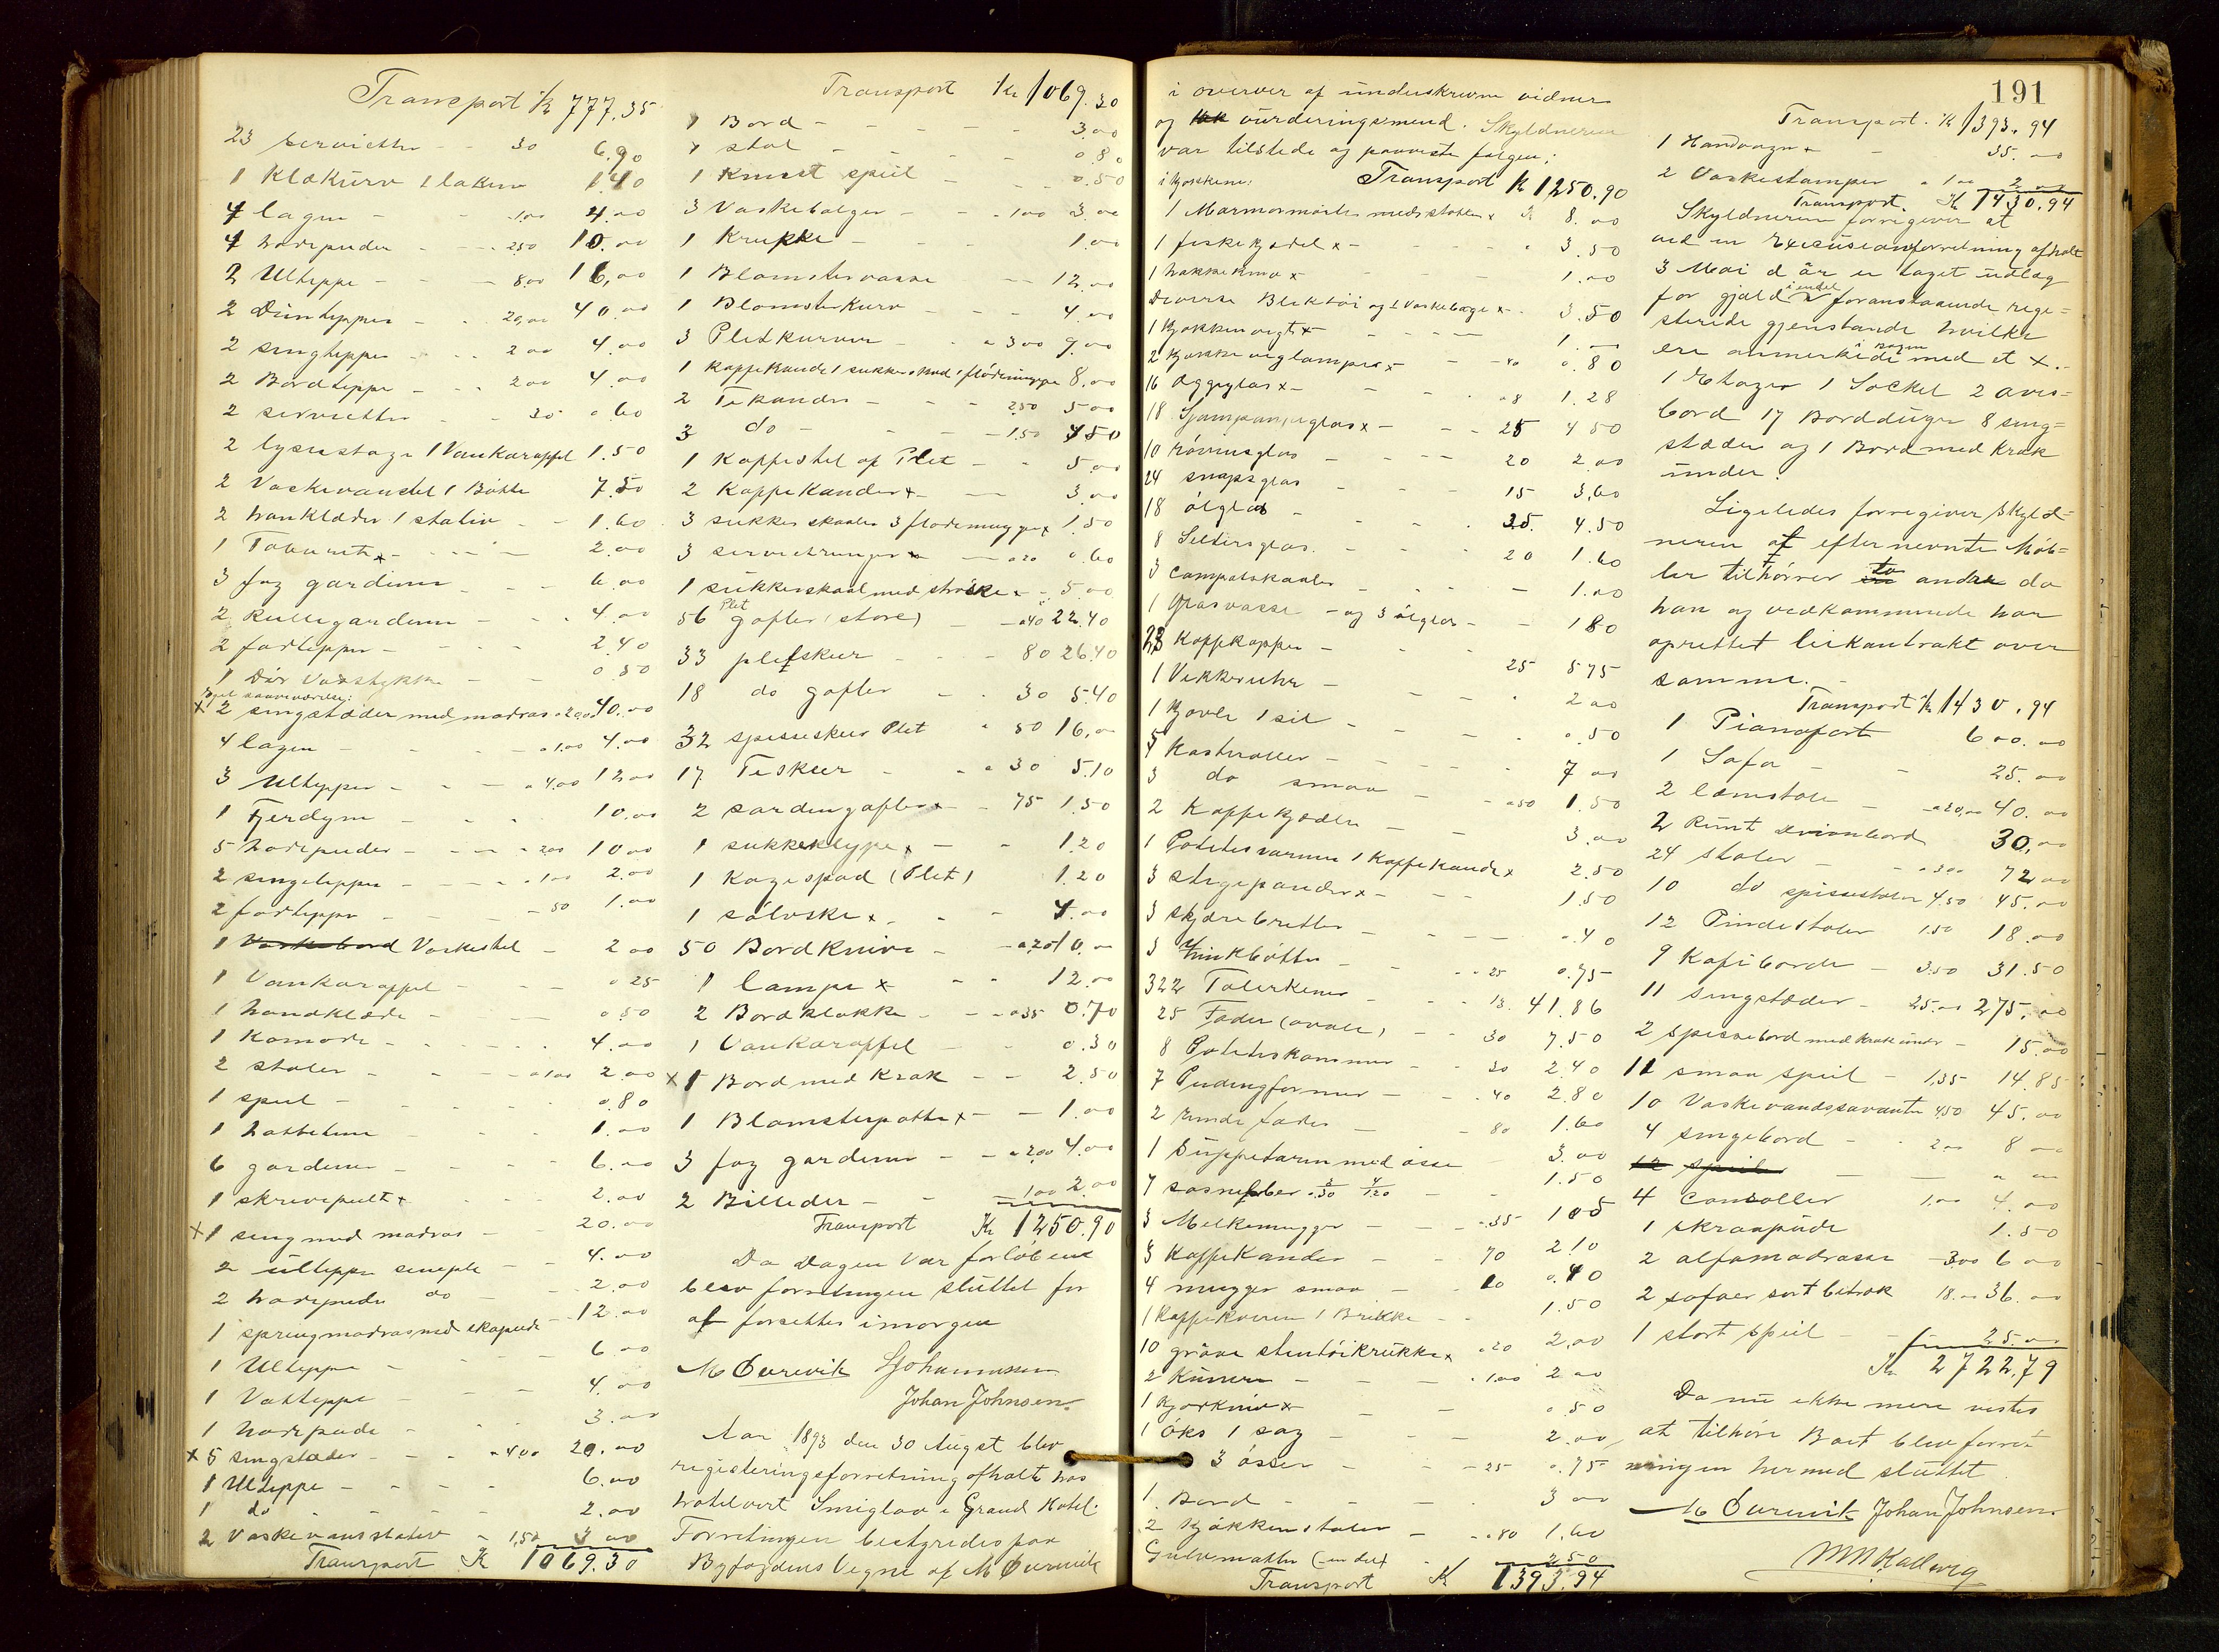 Transport Kr 777.35
23 servietter - - 30 6.90
1 Klækurv 1 laken 1.40
4 lagen - - 1.00 4.00
4 hovepuder - - 2.50 10.00
2 Ulteppe - - 8.00 16.00
2 Dunteppe - - 20.00 40.00
2 sengteppe - - 2.00 4.00
2 Bordteppe - - 2.00 4.00
2 servietter - - 30 0.60
2 lysestage 1 Vankaraffel 1.50
2 Vaskevanstel 1 Bøtte 7.50
2 hanklæder 1 stativ - 1.60
1 Taburet x - - - 2.00
3 fag gardiner - - 6.00
2 Rullegardiner - - 4.00
2 forteppe - - - 2.40
1 Dør Voxstykke - - 0.50
x 2 sengstæder med madras a 20.00 40.00
4 lagen - - a 1.00 4.00
3 Ulteppe - - a 4.00 12.00
1 Fjerdyne - - 10.00
5 hovepuder - - a 2.00 10.00
2 sengeteppe - - a 1.00 2.00
2 forteppe - - - 50 1.00
1 Vaskebord Vaskestel - 2.00
1 Vankaraffel - - 0.25
1 handklæde - - 0.50
1 Komode - - - 4.00
2 stoler - - a 1.00 2.00
1 speil - - - 0.80
1 - - - 1.00
6 gardiner - - - 6.00
1 skrivepult x - - 2.00
x 1 seng med madras - 20.00
2 ulteppe simple - 4.00
2 hovepude do - 2.00
1 springmadras med skapude - 12.00
1 Ulteppe - - 6.00
1 Vatteppe - - 4.00
1 hovepude - 3.00
x 5 sengstæder - - a 4.00 20.00
1 Ulteppe - - - 6.00
1 do - - - 2.00
2 Vaskevansstativ - 1,50 3.00
Transport Kr 1069.30
Transport Kr 1069.30
1 Bord - - - - 3.00
1 stol - - - - 0.80
1 Knust speil - - - 0.50
3 Vaskebalger - - - 1.00 3.00
1 Krukke - - - 1.00
1 Blomstervasse - - 12.00
1 Blomsterkurv - - - 4.00
3 Pletkurver - - a 3.00 9.00
1 Kaffekande 1 sukkerskaal 1 flødemugge 8.00
2 Tekander - - - 2.50 5.00
3 do - - - 1.50 4.50
1 Kaffestel af Plet - - 5.00
2 Kaffekander x - - 3.00
3 sukkerskaaler 3 flødemugger x 1.50
3 servietringer x - a 20 0.60
1 sukkerskaal med strøske x - 5.00
56 Plet gafler (store) - a 40 22.40
33 pletskeer - - - 80 26.40
18 do gafler - - 30 5.40
32 spiseskeer Plet a 50 16.00
17 Teskeer - - a 30 5.10
2 sardingafler x - 75 1.50
1 sukkerklype x - - 1.20
1 Kagespad (Plet) 1.20
1 sølvske x - - - 4.00
50 Bordknive - - a 20 10.00
1 lampe x - - 12.00
2 Bordklokke - - a 35 0.70
1 Vankaraffel - - 0.30
x 1 Bord med Krak - - 2.50
1 Blomsterpotte x - - 1.00
3 fag gardiner - - a 2.00 4.00
2 Billeder - - 1.00 2.00
Transport Kr 1250.90
Da Dagen var forløben
blev forretningen sluttet for
at forsettes imorgen
M Øurevik SJohannessen
Johan Johnsen.
Aar 1893 den 30 August blev
registeringsforretning afholt hos
hotelvert Smiglav i Grand Hotel.
Forretningen bestyredes paa
Byfogdens Vegne af M Øurevik
i overver af underskrevne vidner
og vurderingsmend. Skyldneren
var tilstede og paaviste følgen:
i kjøkkene: Transport Kr 1250.90
1 Marmormorter med støter x Kr 8.00
1 fiskekjedel x - - - - 3.50
1 hakkekniv x - - - 1.00
Diverse Bliktøi og 1 Vaskebalge x - 3.50
1 Kjøkkenvegt x - - - - 1.-
2 kjøkken veglamper x - - 40 0.80
16 Æggeglas x - - - a 8 1.28
18 Sjampanjeglas x - - - 25 4.50
10 rødvinsglas - - - - 20 2.00
24 snapsglas - - - 15 3.60
18 ølglas - - - - 25. 4.50
8 Seltersglas. - - - 20 1.60
3 Compotskaaler - - - - 1.00
1 Glasvasse - og 3 ølglas - - 1.80
23 Kaffekopper - - - 25 5.75
1 Vekkeruhr - - - - 2.00
1 Kjævle 1 sil - - - - 0.50
4 Kastroller - - - - 7.00
3 do smaa - - a 50 1.50
2 Kaffekjedler - - - 3.00
1 Potetesvarmer 1 Kaffekande x 2.50
3 stegepander x - - - 1.50
3 skjærebretter - - - 0.40
3 Zinkbøtter - - - 25 0.75
322 Talerkener - - - 13. 41.86
25 Fader (ovale) - - 30 7.50
8 Potetskommer - - 30 2.40
7 Pudingformer - - . 40 2.80
2 runde fader - - 80 1.60
1 Suppetarin med øsse 3.00
7 sosnebber a 3/30 4/120 - - 1.50
3 Melkemugger - - - 35 1.05
3 Kaffekander - - 70 2.10
4 mugger smaa - - 10 0.40
1 Kaffekværn 1 Brikke - - 1.50
10 gråve stentøikrukker x a 20 2.00
2 Kummer - - - . 1.00 2.00
1 Kjørkniv x - - - 0.50
1 øks 1 sag - - - 2.00
3 øsser - - - 25 0.75
1 Bord - - - - 3.00
2 Kjøkkenstoler - - a 80 1.60
Gulvmatter (en del) - 2.50
Transport Kr 1393.94
191
Transport. Kr 1393.94
1 Handvogn x - 35.00
2 Vaskestamper a 1.00 2.00
Transport. Kr 1430.94
Skyldneren forregiver at
ved en Execusionsforretning afholt
3 Mai d år er taget udlæg
for gjæld i endel foranstaaende rege=
sterede gjenstande hvilke
ere anmerkede i Bogen med et x.-
1 Etager 1 Sockel 2 avis=
bord 17 Bordduger 8 seng=
stæder og 1 Bord med Krak
under.
Ligeledes forregiver Skyld=
neren at efternevnte Møb=
ler tilhører to andre da
han og vedkommende har
oprettet leikontrakt over
samme.-
Transport Kr 1430.94
1 Pianofort 600.00
1 Sofa - - 25.00
2 lænstole - a 20,00 40.00
2 Runt bord 30.00
24 stoler - - a 3.00 72.00
10 do spisestoler 4.50 45.00
12 Pindestoler 1.50 18.00
9 Kafeborde - 3.50 31.50
11 sengstæder - 25.00 275.00
2 spisebord med Krak under - 15.00
11 smaa speil - 1,35 14.85
10 Vaskevandsservanter 4.50 45.00
4 sengebord - - 2.00 8.00
12 speile
4 Consoller 1.00 4.00
1 skraapude 1.50
2 alfamadrasse - 3.00 6.00
2 sofaer sort betræk 18.00 36.00
1 stort speil - - 25.00
Kr 2722,79
Da nu ikke mere vistes
at tilhøre Boet blev forret
ningen hermed sluttet.
M Øurevik Johan Johnsen
MNKallevig